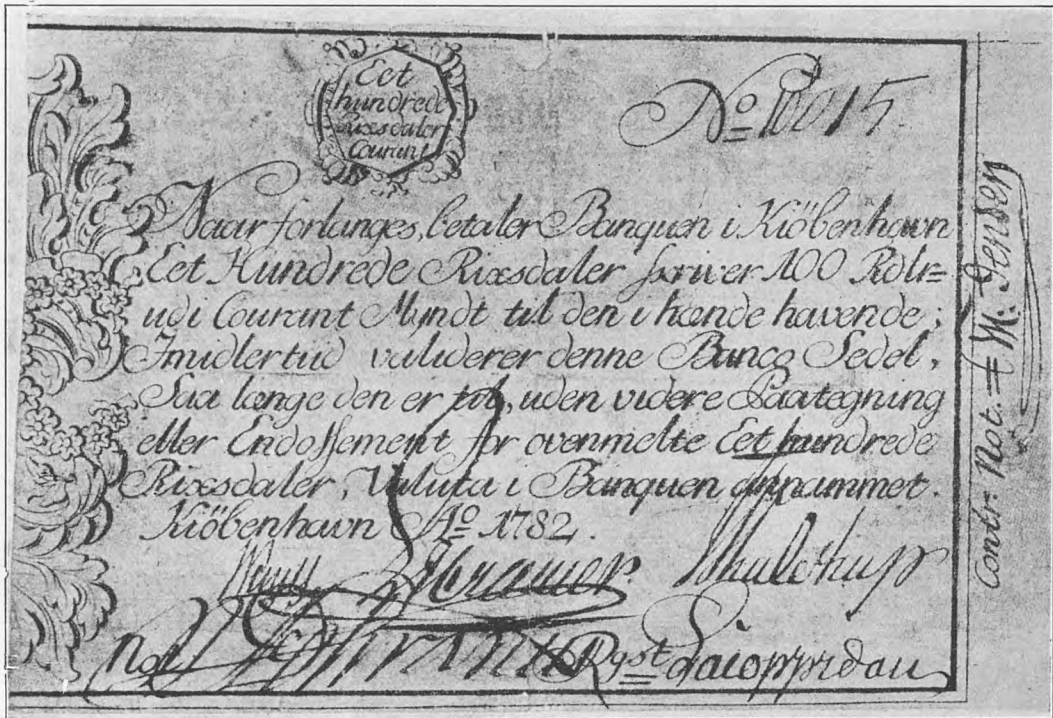 Eet
hundrede
Rixsdaler
Courant
No 10015
Naar forlanges, betaler Banquen i Kiöbenhavn
Eet Hundrede Rixsdaler skriver 100 Rdlr=
udi Courant Myndt til den i hænde havende;
Imidlertid validerer denne Banco Sedel,
Saa længe den er til, uden videre Paategning
eller Endossement for ovenmelte Eet hundrede
Rixsdaler, Valuta i Banquen annammet.
Kiöbenhavn Ao 1782.
Not
Rgst
Contr: Not. W: Jensen